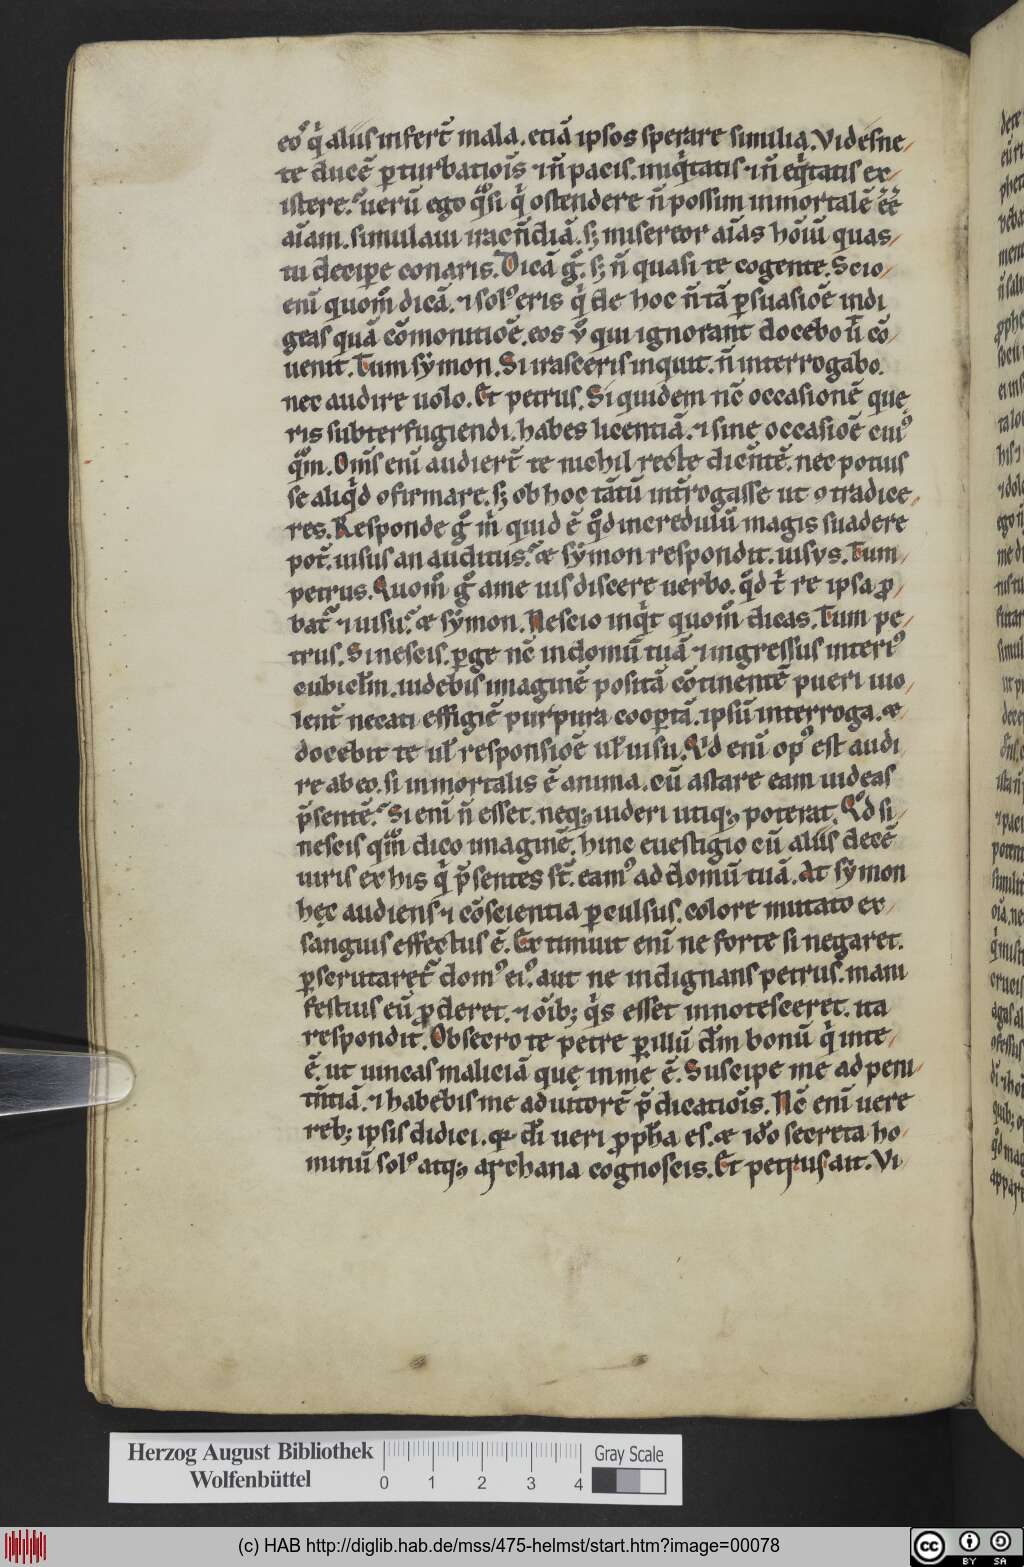 eoꝰ q̇ alius infert̄ mala. etiā ipsos sperare similia. Videsne
te ducē ꝑturbatiōis ⁊ n̄ pacis. iniq̇tatis ⁊ n̄ eq̇tatis ex
istere. uerū ego qͦsi q̇ ostendere n̄ possim inmortalē ēē
aīam. simulaui iracūdiā. sꝫ misereor aīas hoīū quas
tu decipe conaris. Dicā gͦ. sꝫ n̄ quasi te cogente. Scio
enī quom̄ dicā. ⁊ solꝰ eris q̇ de hoc n̄ tā ꝑsuasiōe indi
geas quā cōmonitiōe. eos v̄ qui ignorant docebo ū cō
uenit. Tum sẏmon. Si irasceris inquit. n̄ interrogabo.
nec audire uolo. Et petrus. Si quidem nc̄ occasionē que
ris subterfugiendi. habes licentiā. ⁊ sine occasiōe cuiꝰ
qͣm. Om̄s enī audiert̄ te nichil recte dicētē. nec potius
se aliq̇d ꝯfirmare. sꝫ ob hoc tātū int̄rogasse ut ꝯtradice
res. Responde gͦ ṁ quid ē qͦd incredulū magis suadere
pot̄. uisus an auditus. & sẏmon respondit. uisus. Tum
petrus. Quom̄ gͦ a me uis discere uerbo. qͦd ṫ re ipsa ꝓ
bat̄ ⁊ uisu. & sẏmon. Nescio inq̇t quom̄ dicas. Tum pe
trus. Si nescis. ꝑge nc̄ in domū tuā ⁊ ingressus interiꝰ
cubicl̄m. uidebis imaginē positā cōtinentē pueri uio
lent̄ necati effigiē purpura cooꝑtā. ipsū interroga. &
docebit te ul̄ responsiōe ul̄ uisu. Qͥd enī opꝰ est audi
re ab eo. si inmortalis ē anima. cū astare eam uideas
p̄sentē. Si enī n̄ esset. neqꝫ uideri utiqꝫ poterat. Qͦd si
nescis qͣm dico imaginē. hinc euestigio cū aliis decē
uiris ex his q̇ p̄sentes st̄. eamꝰ ad domū tuā. At sẏmon
hęc audiens ⁊ cōscientia ꝑculsus. colore mutato ex
sanguis effectus ē. Et timuit enī ne forte si negaret.
ꝑscrutaret̄ domꝰ eiꝰ. aut ne indignans petrus. mani
festius eū ꝓderet. ⁊ oībꝫ q̇s esset innotesceret. ita
respondit. Obsecro te petre ꝑ illū dm̄ bonū q̇ in te
ē. ut uincas maliciā que in me ē. Suscipe me ad peni
tn̄tiā. ⁊ habebis me adiutorē p̄dicatiōis. Nc̄ enī uere
rebꝫ ipsis didici. qꝛ dī ueri ꝓph̄a es. & iđo secreta ho
minū solꝰ atqꝫ archana cognoscis. Et petrus ait. Vi
Herzog August Bibliothek
Wolfenbüttel
0 1 2 3 4
Gray Scale
(c) HAB http://diglib.hab.de/mss/475-helmst/start.htm?image=00078
cc BY SA